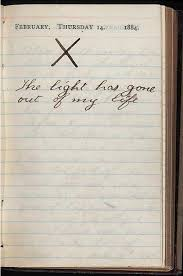 FEBRUARY, THURSDAY 14, 1884.
X
The light has gone
out of my life